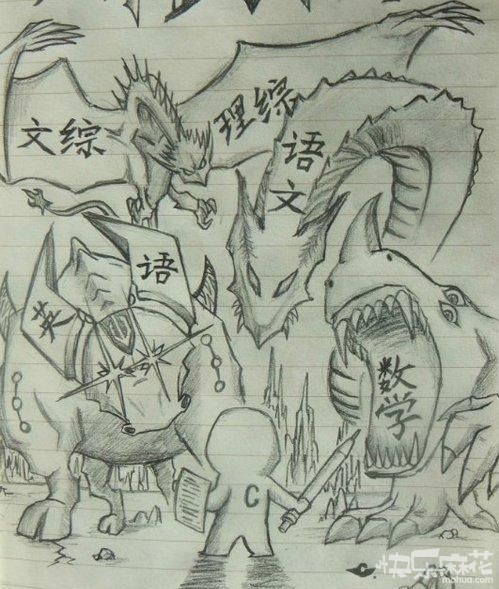 文综
理综
语文
英语
数学
C
快乐麻花
mahua.com